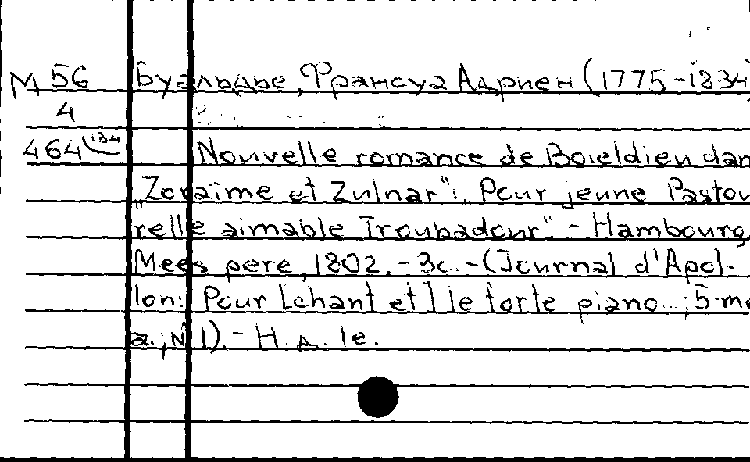 М 56 Буальдье, Франсуа Адриен (1775-1834)
4
464 134 Nouvelle romance de Boieldieu dan
"Zoraïme et Zulnar": Pour jeune Pastou
relle aimable Troubadour" - Hambourg,
Mees pere, 1802. - 3c. - (Journal d'Apol-
lon: Pour le chant et le forte piano...; 5-me
a., N 1). - Н. д. 1е.